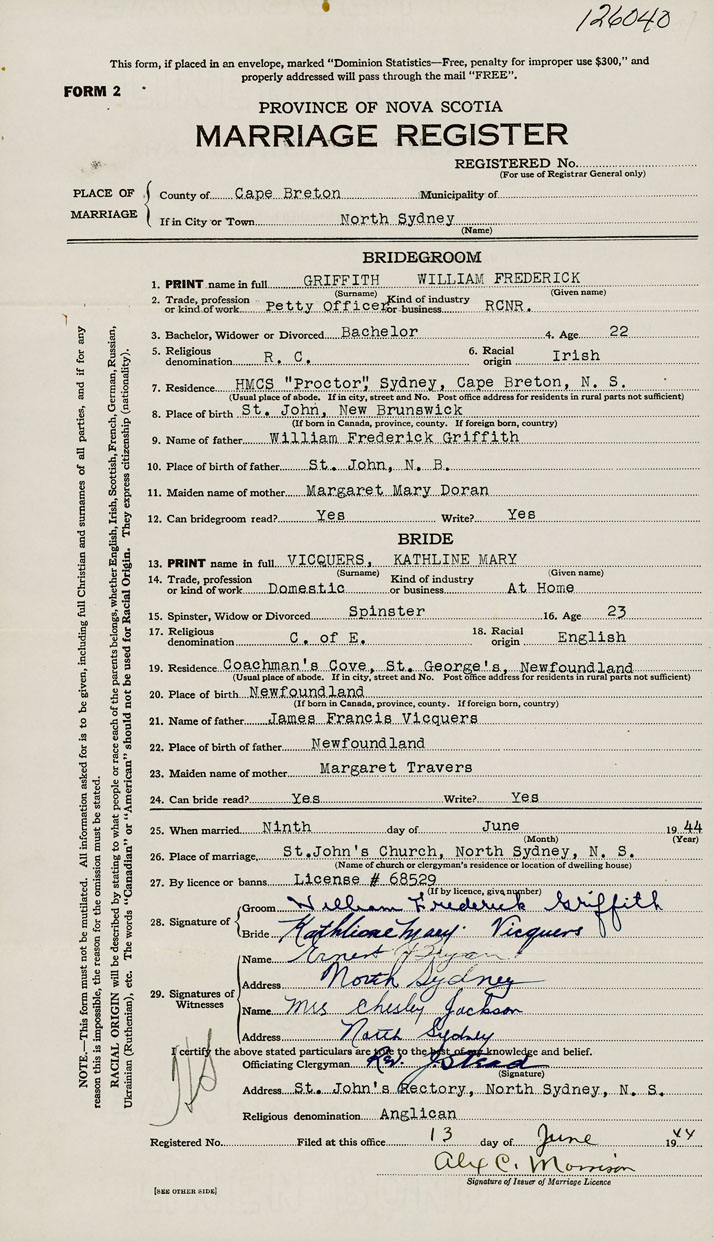 126040
This form, if placed in an envelope, marked "Dominion Statistics—Free, penalty for improper use $300," and
properly addressed will pass through the mail "FREE".
FORM 2
PROVINCE OF NOVA SCOTIA
MARRIAGE REGISTER
REGISTERED No.
(For use of Registrar General only)
PLACE OF MARRIAGE
County of Cape Breton Municipality of
If in City or Town North Sydney
(Name)
BRIDEGROOM
1. PRINT name in full GRIFFITH WILLIAM FREDERICK
(Surname) (Given name)
2. Trade, profession or kind of work Petty Officer Kind of industry or business RCNR.
3. Bachelor, Widower or Divorced Bachelor 4. Age 22
5. Religious denomination R. C. 6. Racial origin Irish
7. Residence HMCS "Proctor", Sydney, Cape Breton, N. S.
(Usual place of abode. If in city, street and No. Post office address for residents in rural parts not sufficient)
8. Place of birth St. John, New Brunswick
(If born in Canada, province, county. If foreign born, country)
9. Name of father William Frederick Griffith
10. Place of birth of father St. John, N. B.
11. Maiden name of mother Margaret Mary Doran
12. Can bridegroom read? Yes Write? Yes
BRIDE
13. PRINT name in full VICQUERS, KATHLINE MARY
(Surname) (Given name)
14. Trade, profession or kind of work Domestic Kind of industry or business At Home
15. Spinster, Widow or Divorced Spinster 16. Age 23
17. Religious denomination C. of E. 18. Racial origin English
19. Residence Coachman's Cove, St. George's, Newfoundland
(Usual place of abode. If in city, street and No. Post office address for residents in rural parts not sufficient)
20. Place of birth Newfoundland
(If born in Canada, province, county. If foreign born, country)
21. Name of father James Francis Vicquers
22. Place of birth of father Newfoundland
23. Maiden name of mother Margaret Travers
24. Can bride read? Yes Write? Yes
25. When married Ninth day of June 1944
(Month) (Year)
26. Place of marriage St.John's Church, North Sydney, N. S.
(Name of church or clergyman's residence or location of dwelling house)
27. By licence or banns License # 68529
(If by licence, give number)
28. Signature of
Groom William Frederick Griffith
Bride Kathline Mary Vicquers
29. Signatures of Witnesses
Name Ernest Ryan
Address North Sydney
Name Mrs Chesley Jackson
Address North Sydney
I certify the above stated particulars are true to the best of my knowledge and belief.
Officiating Clergyman Rev. J. Stead
(Signature)
Address St. John's Rectory, North Sydney, N. S.
Religious denomination Anglican
Registered No. Filed at this office 13 day of June 1944
Alex C. Morrison
Signature of Issuer of Marriage Licence
[SEE OTHER SIDE]
NOTE.—This form must not be mutilated. All information asked for is to be given, including full Christian and surnames of all parties, and if for any
reason this is impossible, the reason for the omission must be stated.
RACIAL ORIGIN will be described by stating to what people or race each of the parents belongs, whether English, Irish, Scottish, French, German, Russian,
Ukrainian (Ruthenian), etc. The words "Canadian" or "American" should not be used for Racial Origin. They express citizenship (nationality).